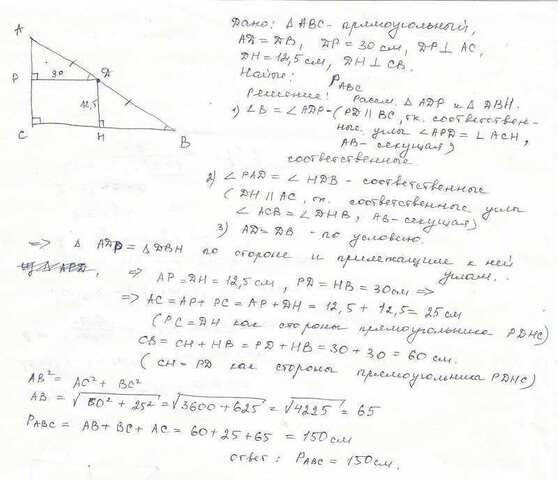 Дано: Δ ABC - прямоугольный,
AD = DB, DP = 30 см, DP ⊥ AC,
DH = 12,5 см, DH ⊥ CB.
Найти: P ABC
Решение: Рассм. Δ ADP и Δ DBH.
1) ∠B = ∠ADP - (PD || BC, т.к. соответствен-
ные углы ∠APD = ∠ACH,
AB - секущая)
соответственные
2) ∠PAD = ∠HDB - соответственные
(DH || AC, т.к. соответственные углы
∠ACB = ∠DHB, AB - секущая)
3) AD = DB - по условию.
=> Δ ADP = Δ DBH по стороне и прилежащим к ней
углам.
=> AP = DH = 12,5 см, PD = HB = 30 см =>
=> AC = AP + PC = AP + DH = 12,5 + 12,5 = 25 см
(PC = DH как стороны прямоугольника PDHC)
CB = CH + HB = PD + HB = 30 + 30 = 60 см.
(CH = PD как стороны прямоугольника PDHC)
AB² = AC² + BC²
AB = √60² + 25² = √3600 + 625 = √4225 = 65
P ABC = AB + BC + AC = 60 + 25 + 65 = 150 см
Ответ: P ABC = 150 см.
A
P
30
D
12,5
C
H
B